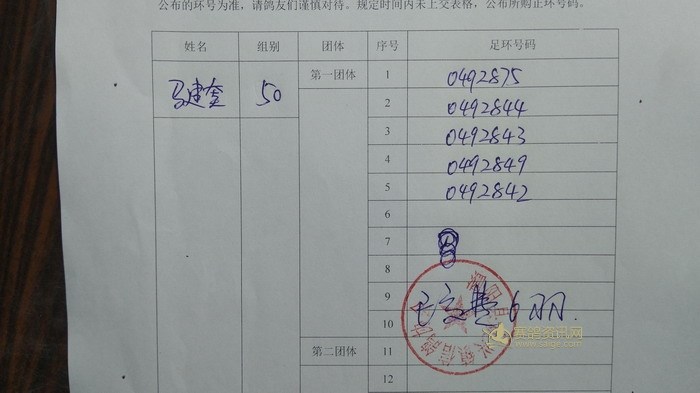 公布的环号为准，请鸽友们谨慎对待。规定时间内未上交表格，公布所购正环号码。
姓名 组别 团体 序号 足环号码
马建奎 50 第一团体 1 0492875
2 0492844
3 0492843
4 0492849
5 0492842
6
7
8
9
已交费6羽.
10
第二团体 11
12
赛鸽资讯网
www.saige.com